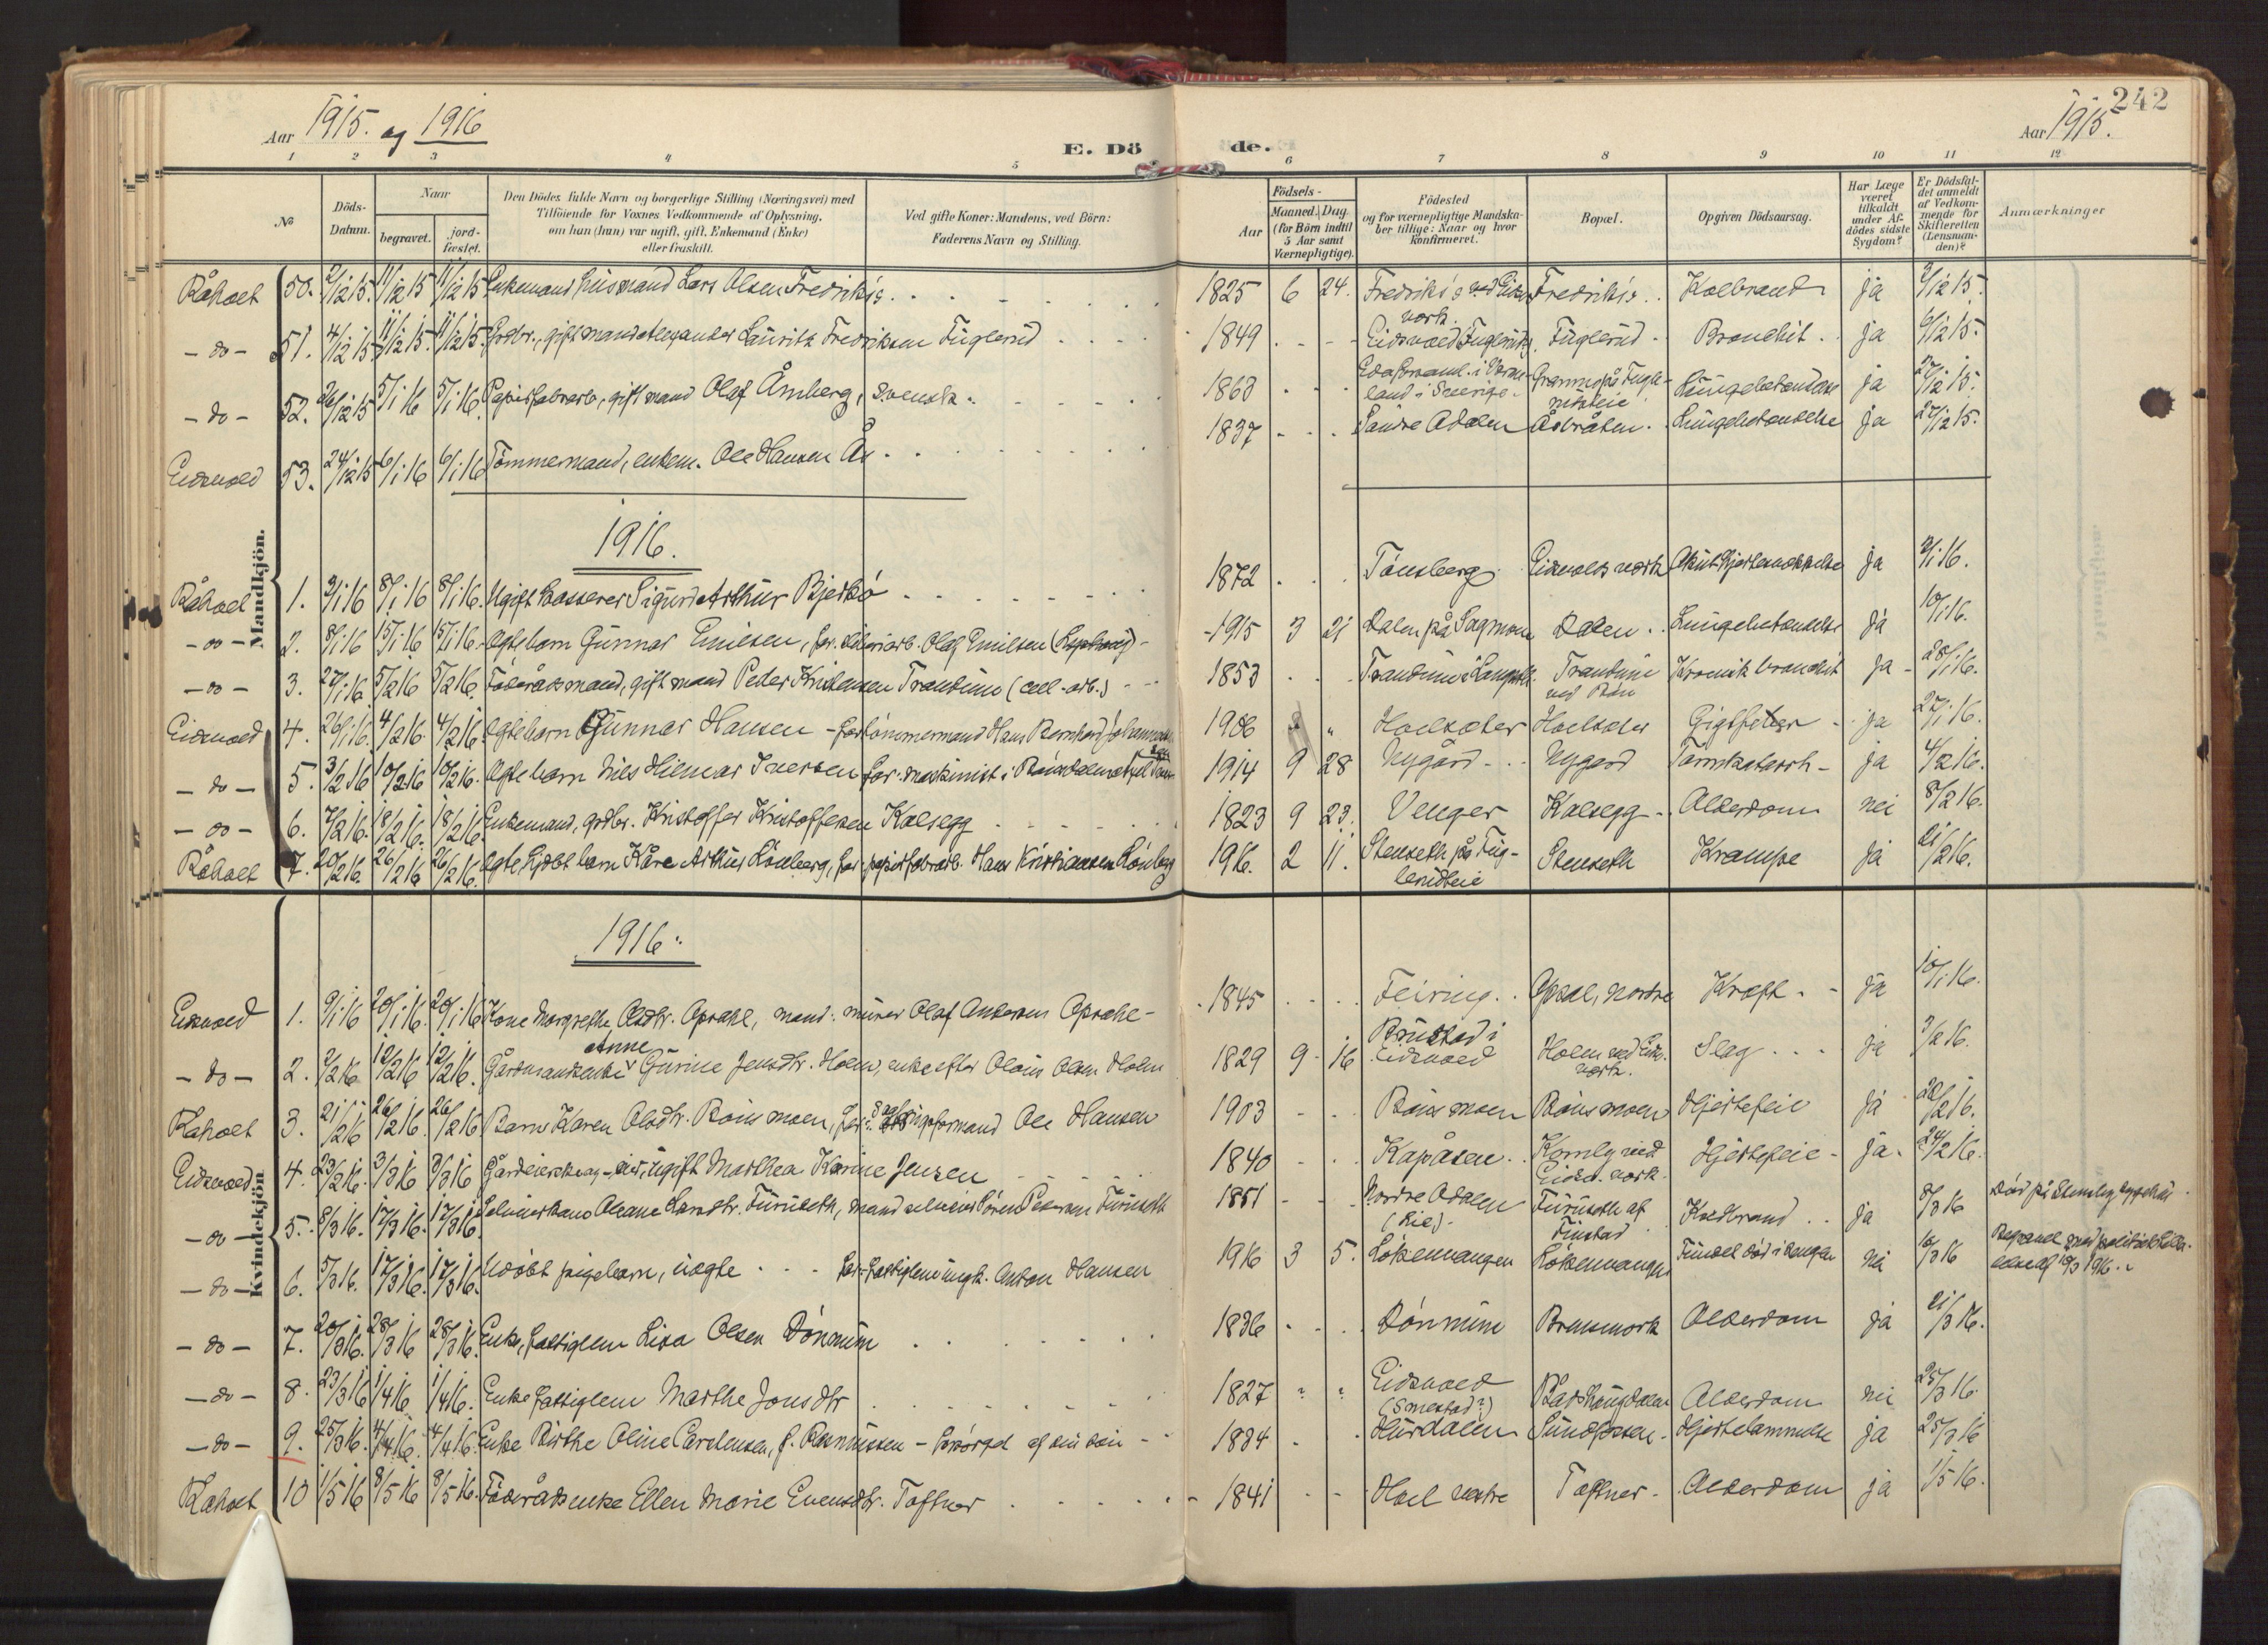 242
Aar 1915. og 1916
E. Dö de.
Aar 1915.
1 2 3 4 5 6 7 8 9 10 11 12
No
Döds-Datum.
Naar
begravet.
jord-fæstet.
Den Dödes fulde Navn og borgerlige Stilling (Næringsvei) med
Tilföiende for Voxnes Vedkommende af Oplysning,
om han (hun) var ugift, gift, Enkemand (Enke)
eller fraskilt.
Ved gifte Koner: Mandens, ved Börn:
Faderens Navn og Stilling.
Födsels-
Aar
Maaned. Dag
(for Börn indtil
5 Aar samt
Værnepligtige).
Födested
og for værnepligtige Mandska-
ber tillige: Naar og hvor
konfirmeret.
Bopæl.
Opgiven Dödsaarsag.
Har Læge
været
tilkaldt
under Af-
dödes sidste
Sygdom?
Er Dödsfal-
det anmeldt
af Vedkom-
mende for
Skifteretten
(Lensman-
den)?
Anmærkninger
Mandkjön.
Råholt 50. 2/12 15. 11/12 15 11/12 15 Enkemand husmand Lars Olsen Fredriks's 1825 6 24. Fredriks's ved Eidsv. verk. Fredriks's Koldbrand ja 3/12 15.
- do - 51. 4/12 15 11/12 15. 11/12 15. Grdbr., gift mand Alexander Lauritz Fredriksen Fuglerud 1849 Eidsvold Fuglerud Fuglerud Bronchit ja 6/12 15.
- do - 52. 26/12 15 5/1 16 5/1 16. Papirfabrarb., gift mand Olaf Åmberg, svensk. 1863 land i Sverige Lungebetændelse ja 27/12 15.
Eidsvold 53. 24/12 15 6/1 16 6/1 16 Tömmermand, enkem. Ole Hansen Ås 1837 Søndre Odalen Åsbråten. Lungebetændelse ja 27/12 15.
1916.
Råholt 1. 2/1 16 8/1 16 8/1 16. Ugift kasserer Sigurd Arthur Bjerkö 1872 Tönsberg Eidsvolds verk Akut Hjertesvækkelse ja 3/1 16.
- do - 2. 8/1 16 15/1 16 15/1 16. Ægte barn Gunnar Emilsen, far: Olaf Emilsen 1915 3 21 Dalen på Sagmoen Dalen Lungebetændelse ja 10/1 16.
- do - 3. 27/1 16. 5/2 16 5/2 16. Föderådsmand, gift mand Peder Kristensen Trandum (cell-arb.) 1853 Trandum Trandum ved Kronisk bronchit ja 28/1 16.
Eidsvold 4. 26/1 16. 4/2 16. 4/2 16. Ægte barn Gunnar Hansen - far tömmermand Hans Bernhard Johannessen 1906 Holsæter Holsæter Gigtfeber ja 27/1 16.
- do - 5. 3/2 16 10/2 16 10/2 16. Ægte barn Nils Hilmar Iversen far: maskinist 1914 9 28 Nygård Nygård Tarmkatarrh ja 4/2 16.
- do - 6. 7/2 16. 18/2 16. 18/2 16. Enkemand, grdbr. Kristoffer Kristoffersen Kalsegg 1823 9 23. Venger Kalsegg Alderdom nei 8/2 16.
Råholt 7. 20/2 16. 26/2 16 26/2 16. Ægte hjdöbt barn Kåre Arthur Lönberg, far: papirfabrarb. Hans Kristiansen Lönberg 1916. 2 11. Stenseth på Fug-lerudeie Stenseth Krampe ja 21/2 16.
Kvindekjön
1916.
Eidsvold 1. 9/1 16 20/1 16. 20/1 16 Kone Margrethe Olsdtr. Opsahl, mand: murer Olaf Andersen Opsahl 1845 Feiring Opsal, nordre Kræft ja 10/1 16.
- do - 2. 2/2 16 12/2 16 12/2 16. Gårdmandsenke Anne Gurine Jensdtr. Holm, enke efter Olaus Olsen Holm 1829 9 16 Brustad i Eidsvold Holm ved Eidsv. verk. Slag ja 3/2 16.
Råholt 3. 21/2 16 26/2 16. 26/2 16 Barn Karen Olsdtr. Böns moen, far: Ole Hansen 1903 Böns moen Böns moen Hjertefeil ja 22/2 16.
Eidsvold 4. 23/2 16. 3/3 16 3/3 16 ugift Marthea Karine Jensen 1840 Kapåsen Komly ved Eidsv. verk. Hjertefeil ja 24/2 16.
- do - 5. 8/3 16. 17/3 16. 17/3 16. Oleane Larsdtr. Furuseth, mand Sören Pedersen Furuseth 1851 Nordre Odalen Furuseth af Finstad Koldbrand ja 8/3 16 Död på Stensby sygehus
- do - 6. 5/3 16. 17/3 16. 17/3 16. Udöbt pigebarn, uægte far: Anton Hansen 1916 3 5. Lökenvangen Lökenvangen Fundet död i sengen nei 6/3 16 Begravet med politiets
- do - 7. 20/3 16. 28/3 16 28/3 16. Enke, fattiglem Lisa Olsen Dönnum 1836 Dönnum Brensmork Alderdom ja 21/3 16.
- do - 8. 23/3 16 1/4 16 1/4 16. Enke fattiglem Marthe Jonsdtr 1827 ? ? Eidsvold (Smestad?) Bådshaugdalen Alderdom nei 25/3 16
- do - 9. 25/3 16. 4/4 16. 4/4 16. Enke Birthe Oline Carelensen, f. Rasmussen - forsörget af sin sön 1834 Hurdalen Sundfossen Hjertelammelse ja 25/3 16
Råholt 10 1/5 16 8/5 16 8/5 16. Föderådsenke Ellen Marie Evensdtr. Toftner 1841 Hol vestre Toftner Alderdom ja 1/5 16.